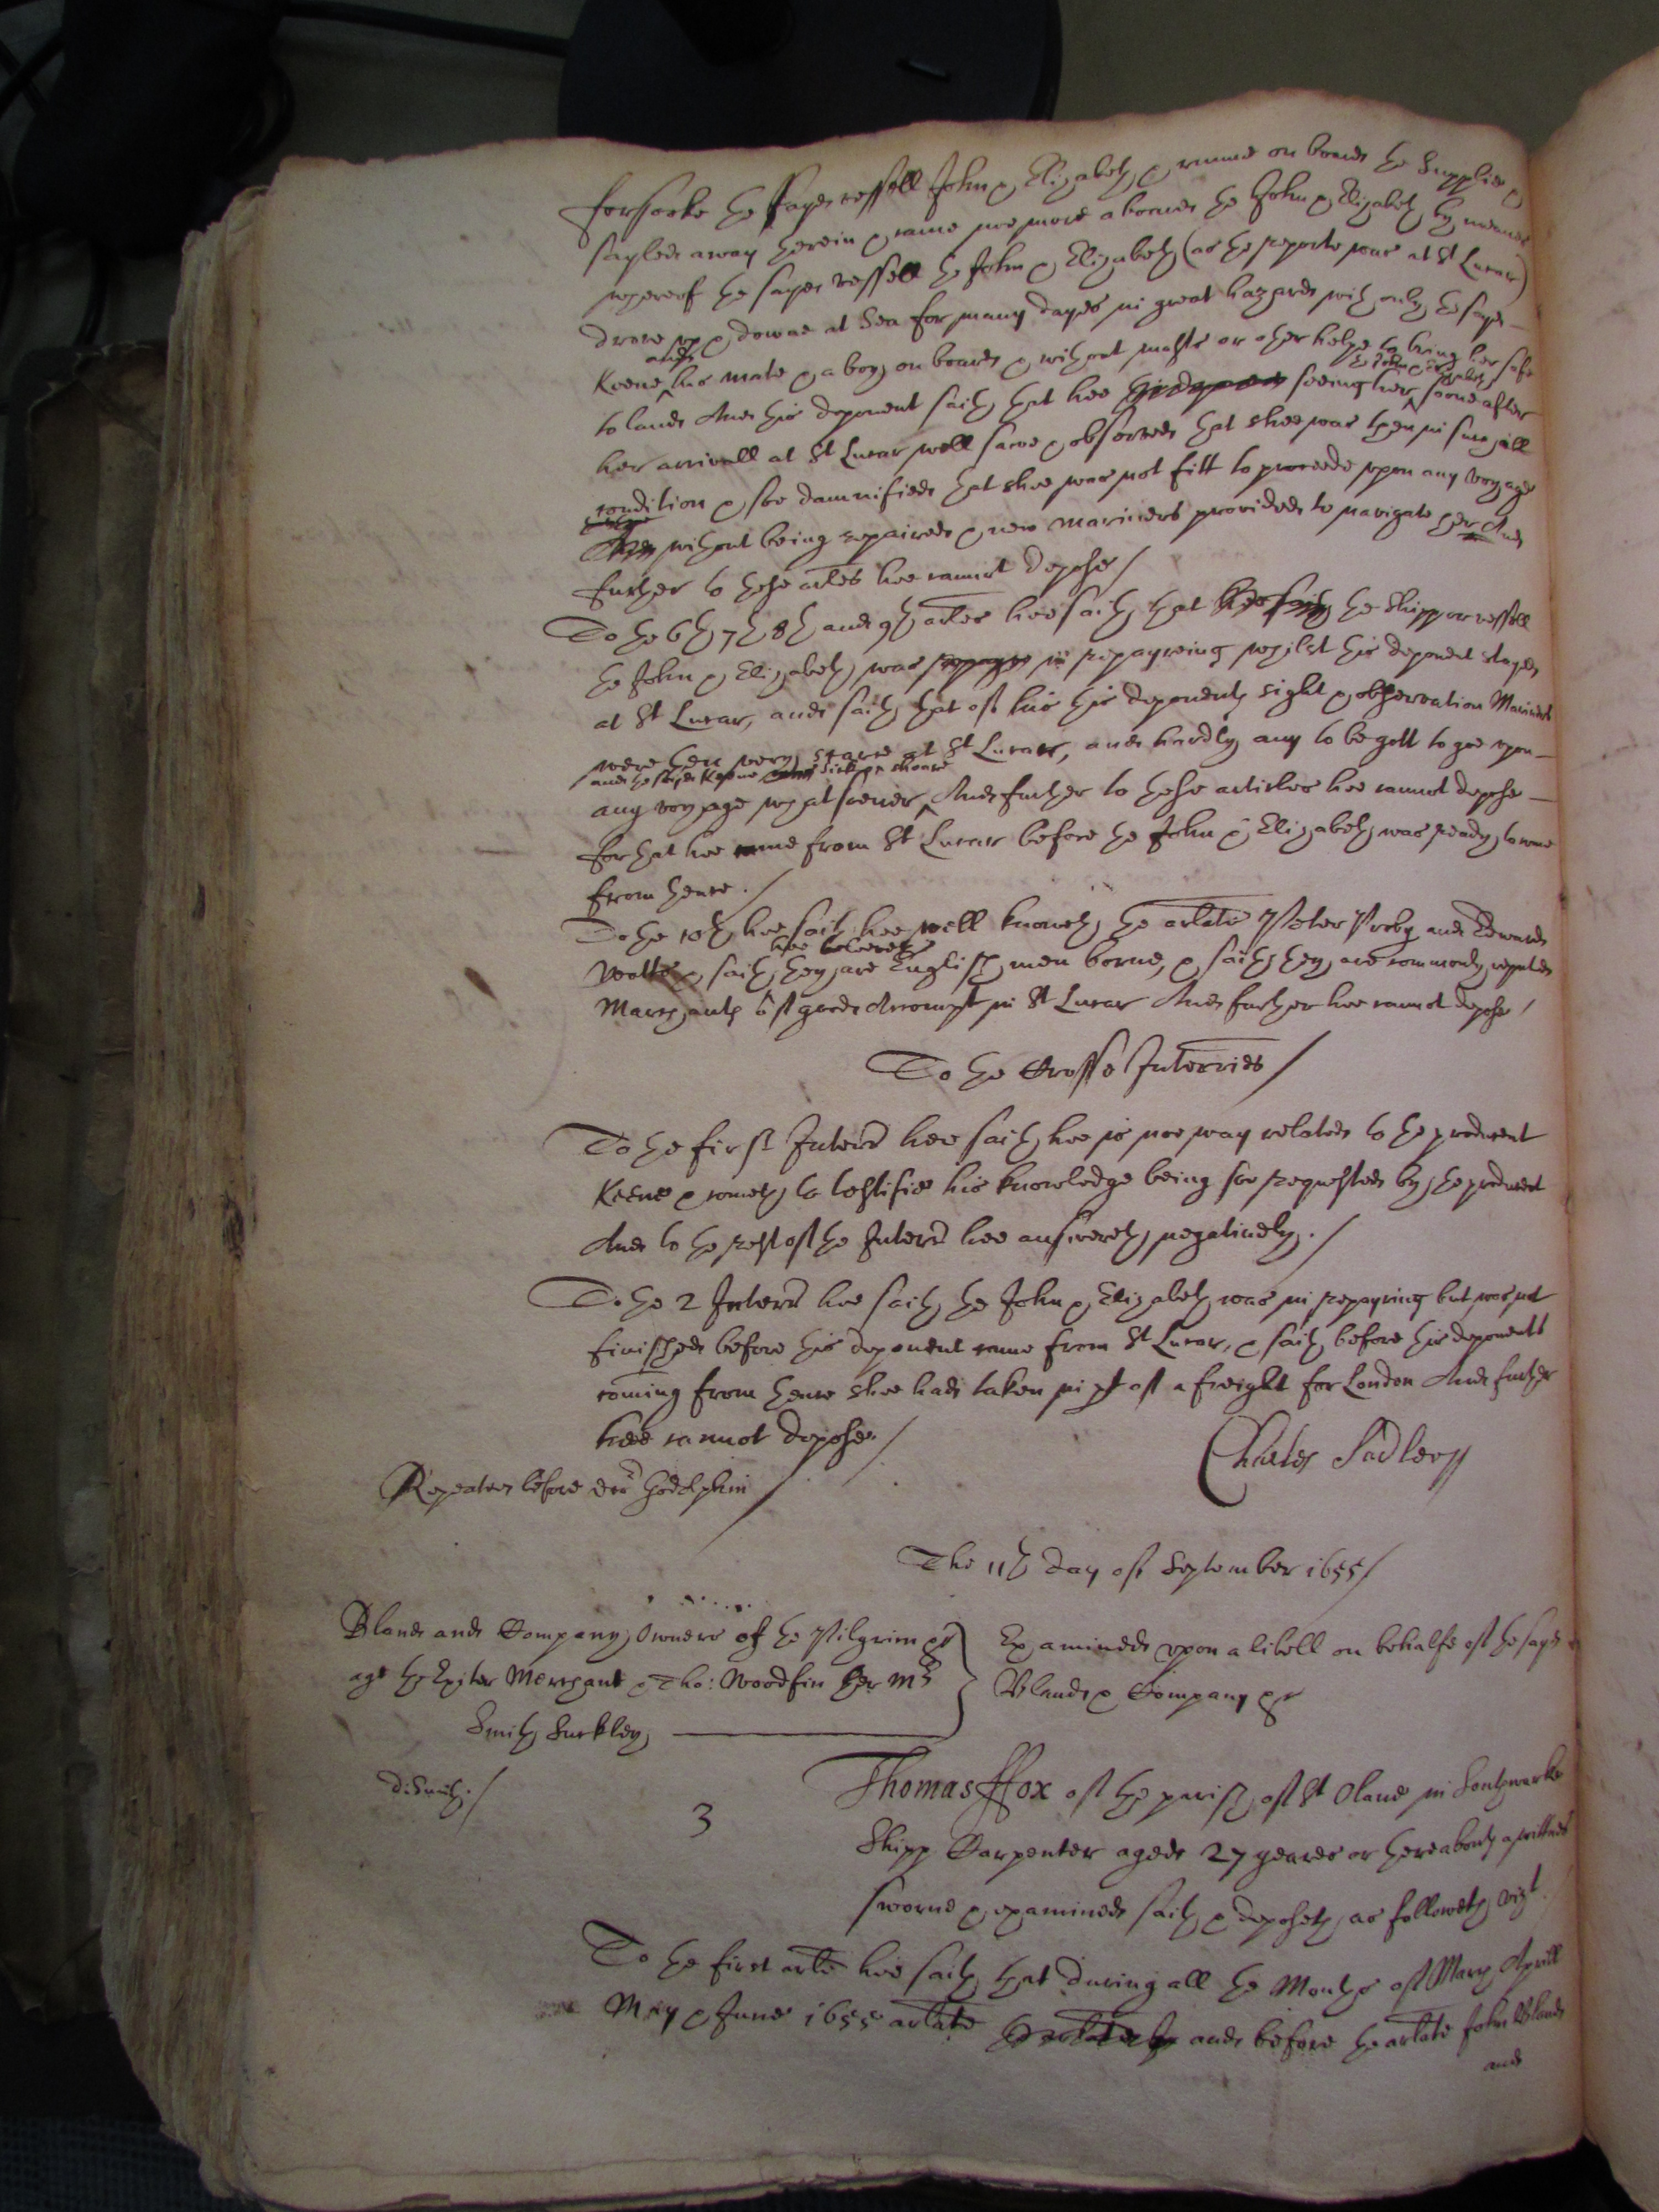 forsooke the sayd vessell John & Elizabeth & runne on board the Supplie &
sayled away therein & came noe more aboard the John & Elizabeth by meanes
whereof the sayd vessell the John & Elizabeth (as the reporte was at St Lucar)
drove up & downe at Sea for many dayes in great hazard with only the sayd
Keene and his mate & a boy on board & without masts or other helpe to bring her safe
to land And this deponent saith that hee seeing her the John & Elizabeth soone after
her arrivall at St Lucar well sawe & observed that shee was then in such ill
condition & soe damnified that shee was not fitt to proceede upon any voyage
without being repaired & new mariners provided to navigate her And
further to these artles hee cannot depose /
To the 6th 7th 8th and 9th artles hee saith that hee saith the shipp or vessell
the John & Elizabeth was in repayreing whilst this deponent stayed
at St Lucar, and saith that of his this deponents sight & observation Mariners
were then very scarce at St Lucar, and hardly any to be gott to goe upon
and the sayd Keene sick on shoare
any voyage whatsoever, And further to these articles hee cannot depose
for that hee came from St Lucar before the John & Elizabeth was ready to come
from thence. /
To the 10th hee saith hee well knoweth the arlate Peter Proby and Edward
hee beleeveth
Watts & saith they are English men borne, & saith they are commonly reputed
Marchants of good Accompt in St Lucar And further hee cannot depose /
To the Crosse Interries /
To the first Interr hee saith hee is noe way related to the producent
Keene & cometh to testifie his knowledge being soe requested by the producent
And to the rest of the Interr hee answereth negatively. /
To the 2 Interr hee saith the John & Elizabeth was in repayring but was not
finished before this deponent came from St Lucar, & saith before this deponents
coming from thence shee had taken in pt of a freight for London And further
hee cannot depose. /
Charles Sadler
Repeated before dr Godolphin
The 11th day of September 1655 /
Bland and Company Owners of the Pilgrim &c
agt the Exiter Merchant & Tho: Woodfin her Mr
Smith Suckley
Examined upon a libell on behalfe of the sayd
Bland & Company &c
d. Smith. /
3
Thomas ffox of the parish of St Olave in Southwarke
Shipp Carpenter aged 27 yeares or thereabouts a wittnes
sworne & examined saith & deposeth as followeth vizt.
To the first artle hee saith that during all the Months of March Aprill
May & June 1655 arlate and before the arlate John Bland
and